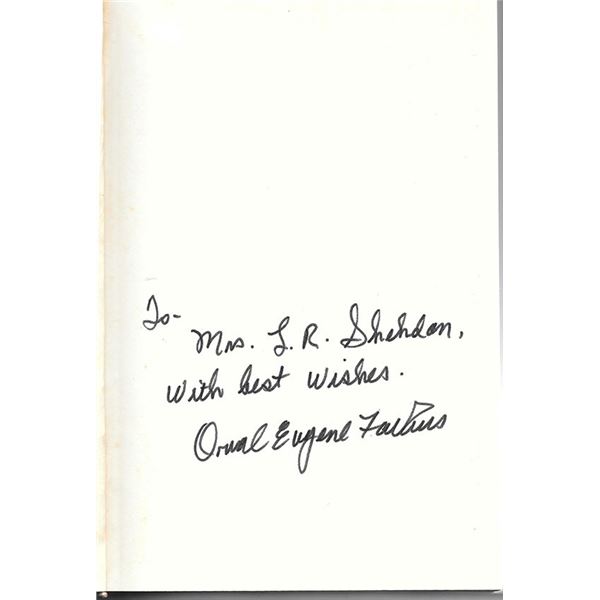 To-
Mrs. L. R. Shehdan,
With best wishes.
Orval Eugene Faubus